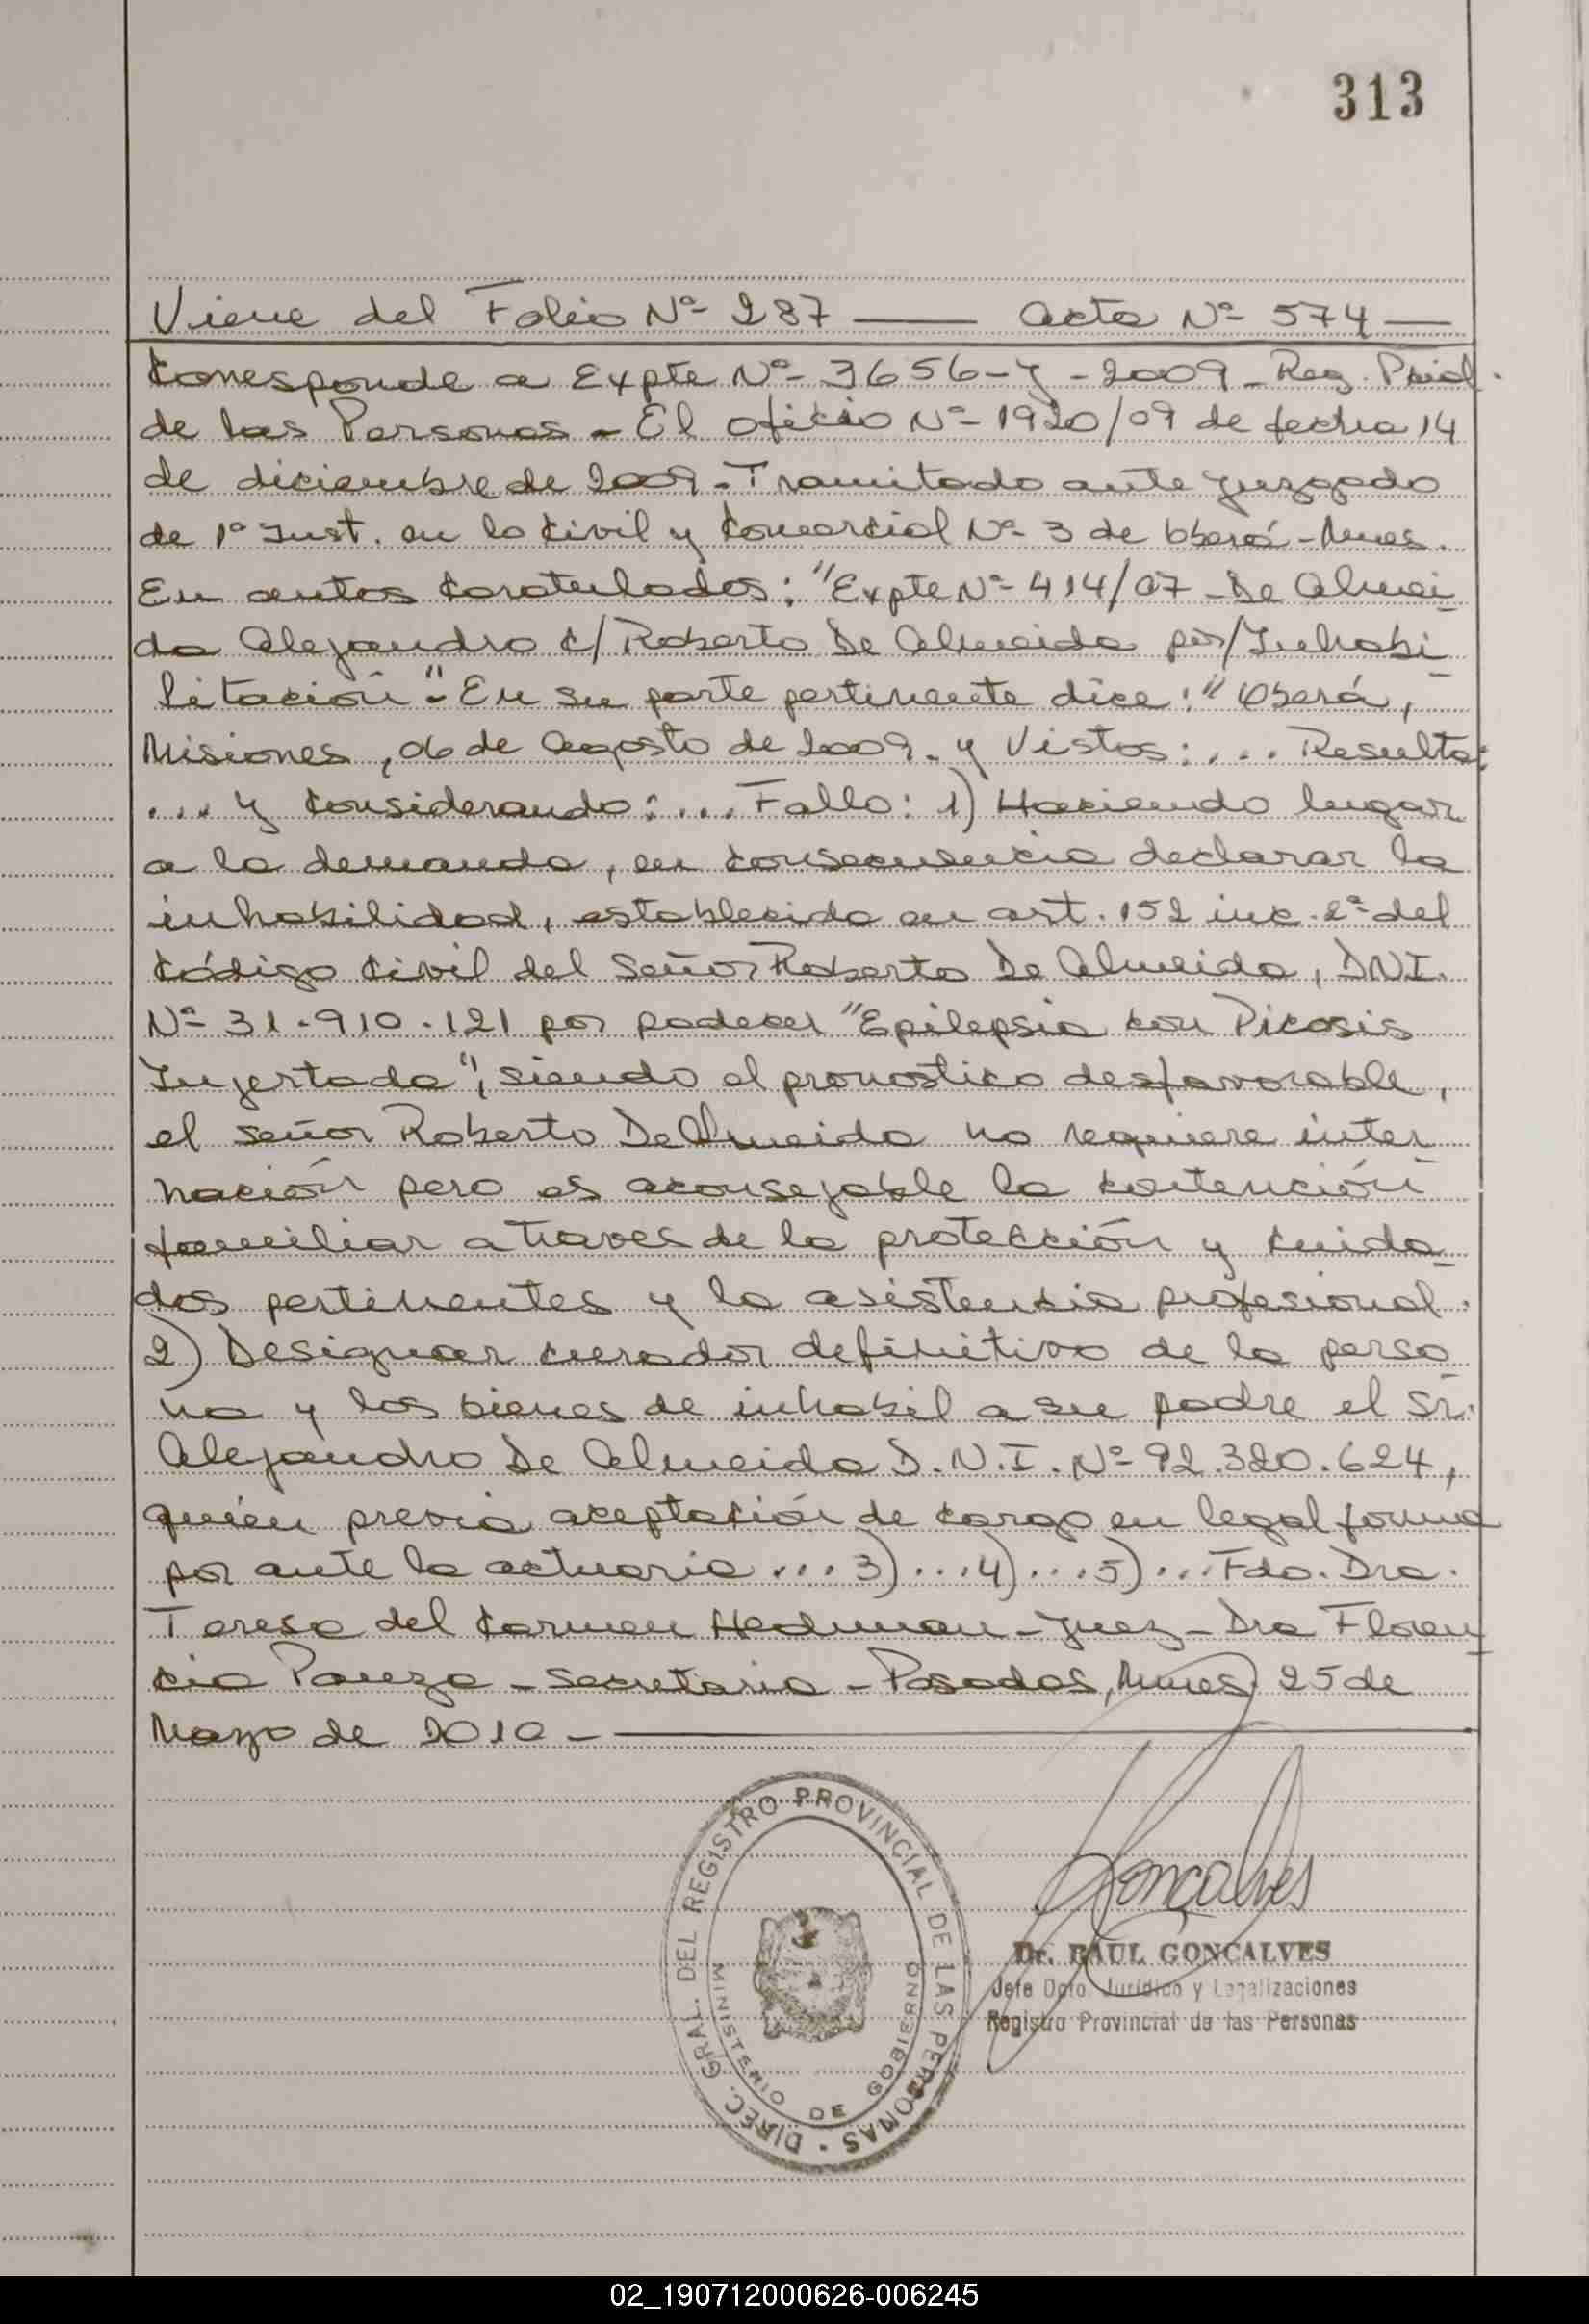 313
Viene del Folio Nº 287 — Acta Nº 574 —
Corresponde a Expte Nº 3656-Y-2009 - Reg. Pcial.
de las Personas - El oficio Nº 1920/09 de fecha 14
de diciembre de 2009. Tramitado ante Juzgado
de 1º Inst. en lo Civil y Comercial Nº 3 de Oberá - Mnes.
En autos caratulados: "Expte Nº 414/07 - De Almei-
da Alejandro c/ Roberto De Almeida por/Inhabi-
litación". En su parte pertinente dice: "Oberá,
Misiones, 06 de Agosto de 2009. y Vistos: ... Resulta:
... y Considerando: ... Fallo: 1) Haciendo lugar
a la demanda, en consecuencia declarar la
inhabilidad, establecida en art. 152 inc. 2º del
Código Civil del Señor Roberto De Almeida, DNI.
Nº 31.910.121 por padecer "Epilepsia con Picosis
Injertada", siendo el pronostico desfavorable,
el señor Roberto De Almeida no requiere inter-
nación pero es aconsejable la contención
familiar a traves de la protección y cuida-
dos pertinentes y la asistencia profesional.
2) Designar curador definitivo de la perso-
na y los bienes de inhabil a su padre el Sr.
Alejandro De Almeida D.N.I. Nº 92.320.624,
quién previa aceptación de cargo en legal forma
por ante la actuaria ... 3) ... 4) ... 5) ... Fdo. Dra.
Teresa del Carmen Hedman - Juez - Dra Floren-
cia Pauza - Secretaria - Posadas, Mnes, 25 de
Mayo de 2010 -
DIREC. GRAL. DEL REGISTRO PROVINCIAL DE LAS PERSONAS
MINISTERIO DE GOBIERNO
Goncalves
Dr. RAUL GONCALVES
Jefe Dpto. Jurídico y Legalizaciones
Registro Provincial de las Personas
02_190712000626-006245